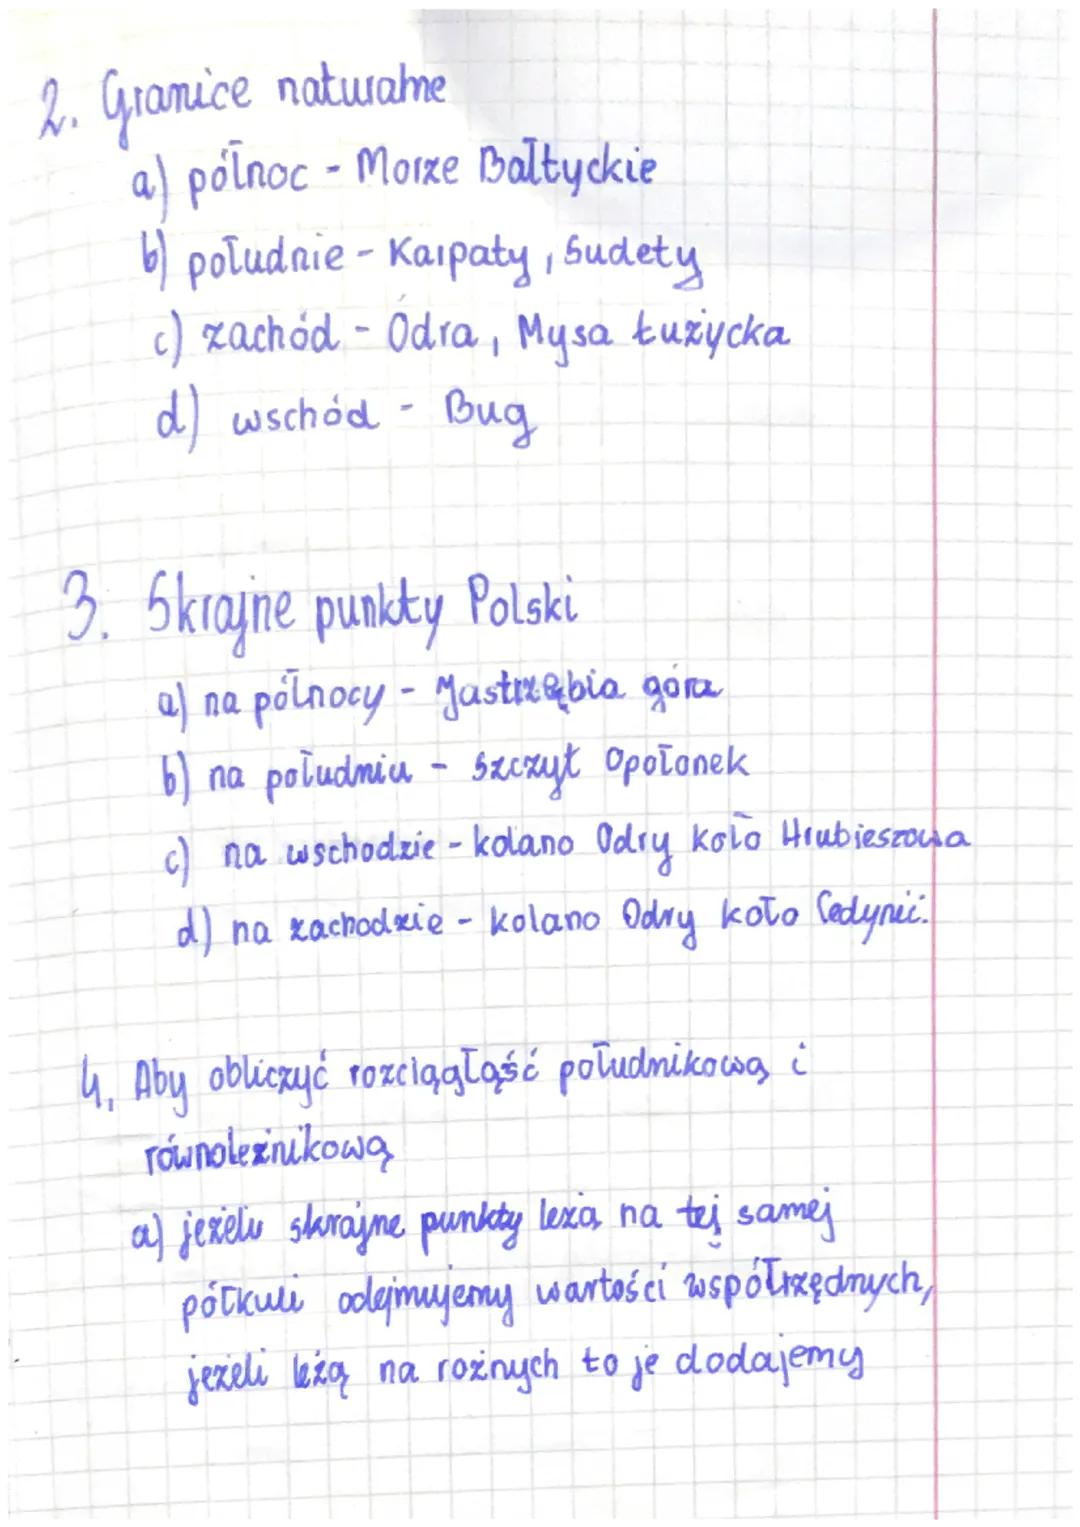 2. Granice naturalne
a) północ - Morze Bałtyckie
b) południe - Karpaty, Sudety
c) zachód - Odra, Nysa Łużycka
d) wschód - Bug
3. Skrajne punkty Polski
a) na północy - Jastrzębia góra
b) na południu - szczyt Opołonek
c) na wschodzie - kolano Odry koło Hrubieszowa
d) na zachodzie - kolano Odry koło Cedynić.
4. Aby obliczyć rozciągłąść południkową i
równoleżnikową
a) jeżeli skrajne punkty leżą na tej samej
półkuli odejmujemy wartości współrzędnych,
jeżeli leżą na rożnych to je dodajemy